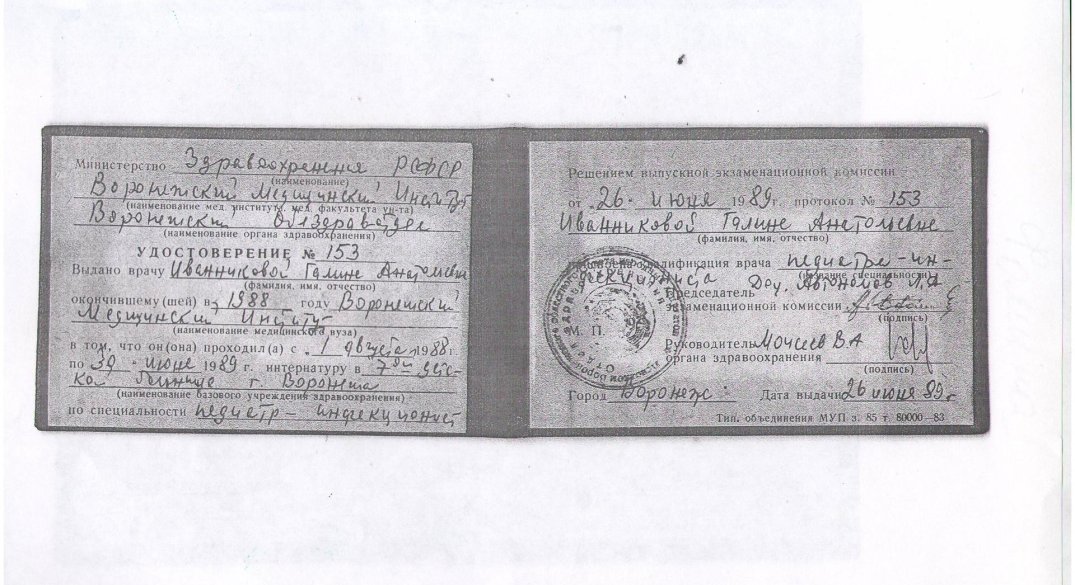 Министерство Здравоохранения РСФСР
(наименование)
Воронежский Медицинский Инситут
(наименование мед. института, мед. факультета ун-та)
Воронежский Облздравотдел
(наименование органа здравоохранения)
УДОСТОВЕРЕНИЕ № 153
Выдано врачу Иванниковой Галине Анатольевне
(фамилия, имя, отчество)
окончившему (шей) в 1988 году Воронежский
Медицинский Институт
(наименование медицинского вуза)
в том, что он(она) проходил(а) с 1 августа 1988 г.
по 30 июнь 1989 г. интернатуру в 7ой детс-
кой больнице г. Воронежа
(наименование базового учреждения здравоохранения)
по специальности педиатр - инфекционист
Решением выпускной экзаменационной комиссии
от 26 июня 1989 г. протокол № 153
Иванниковой Галине Анатольевне
(фамилия, имя, отчество)
квалификация врача педиатра-ин-
фекциониста
(название специальности)
Председатель Доц.
экзаменационной комиссии
(подпись)
М. П.
Руководитель Мочеев В А
органа здравоохранения
(подпись)
Город Воронеж Дата выдачи 26 июня 89 г.
Тип. объединения МУП з. 85 т. 80000—83